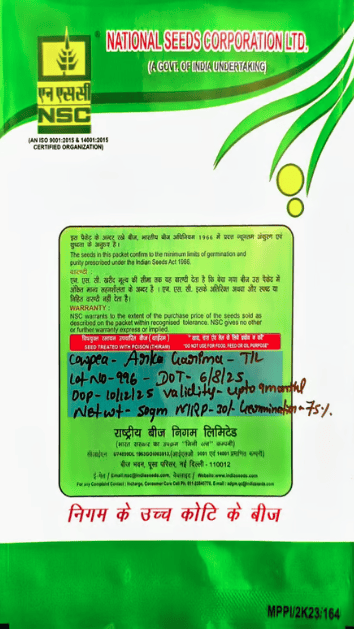 NATIONAL SEEDS CORPORATION LTD.
(A GOVT. OF INDIA UNDERTAKING)
एन एस सी
NSC
(AN ISO 9001:2015 & 14001:2015
CERTIFIED ORGANIZATION)
इस पैकेट के अन्दर रखे बीज, भारतीय बीज अधिनियम 1966 में प्रदत्त न्यूनतम अंकुरण एवं
शुद्धता के अनुरूप है।
The seeds in this packet confirm to the minimum limits of germination and
purity prescribed under the Indian Seeds Act 1966.
वारण्टी
एन. एस. सी. खरीद मूल्य की सीमा तक यह वारण्टी देता है कि बेचा गया बीज उस पैकेट में
अंकित मान्य सहनशीलता के अन्दर है। एन. एस. सी. इसके अतिरिक्त अथवा और स्पष्ट या
निहित वारण्टी नहीं देता है।
WARRANTY :
NSC warrants to the extent of the purchase price of the seeds sold as
described on the packet within recognised tolerance. NSC gives no other
or further warranty express or implied.
SEED TREATED WITH POISON (THIRAM)
"DO NOT USE FOR FOOD, FEED OR OIL PURPOSE"
Cowpea - Arka Garima - TL
Lot No - 996 - DOT - 6/8/25
DOP - 10/12/25 Validity - upto 9 month
Net wt - 50gm MRP - 30/- Germination - 75%.
राष्ट्रीय बीज निगम लिमिटेड
(भारत सरकार का उपक्रम "मिनी रत्न" कम्पनी)
बीज भवन, पूसा परिसर, नई दिल्ली - 110012
निगम के उच्च कोटि के बीज
MPPI/2K23/164